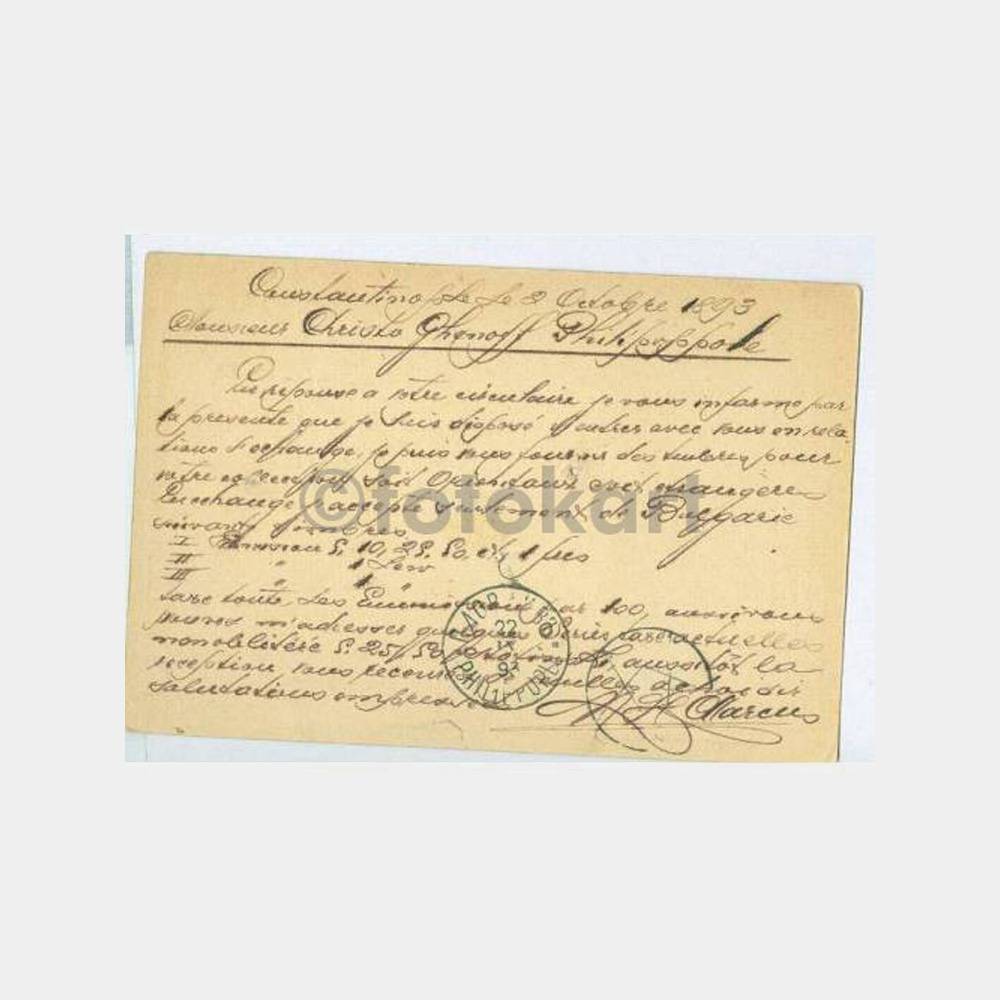 Constantinople le 2 Octobre 1893
Monsieur Christo Ghenoff Philippopole
En réponse a votre circulaire je vous informe par
la presente que je suis disposé d'entrer avec vous en rela-
tions d'echange, je puis vous fournir des timbres pour
votre soit Orientaux soit etrangères
En echange j'accepte seulement de Bulgarie
suivants timbres
I Emission S. 10, 25. 50, et 1 frcs
II " 1 Lew
III " 1 "
toute les par 100, aussi vous
pouvez m'adresser quelques Séries taxe actuelles
nonoblitéré S. 25 S. 50 aussitôt la
reception vous
salutations empressées
Marcus
22
93
PHILIPPOPOLI
©fotokart